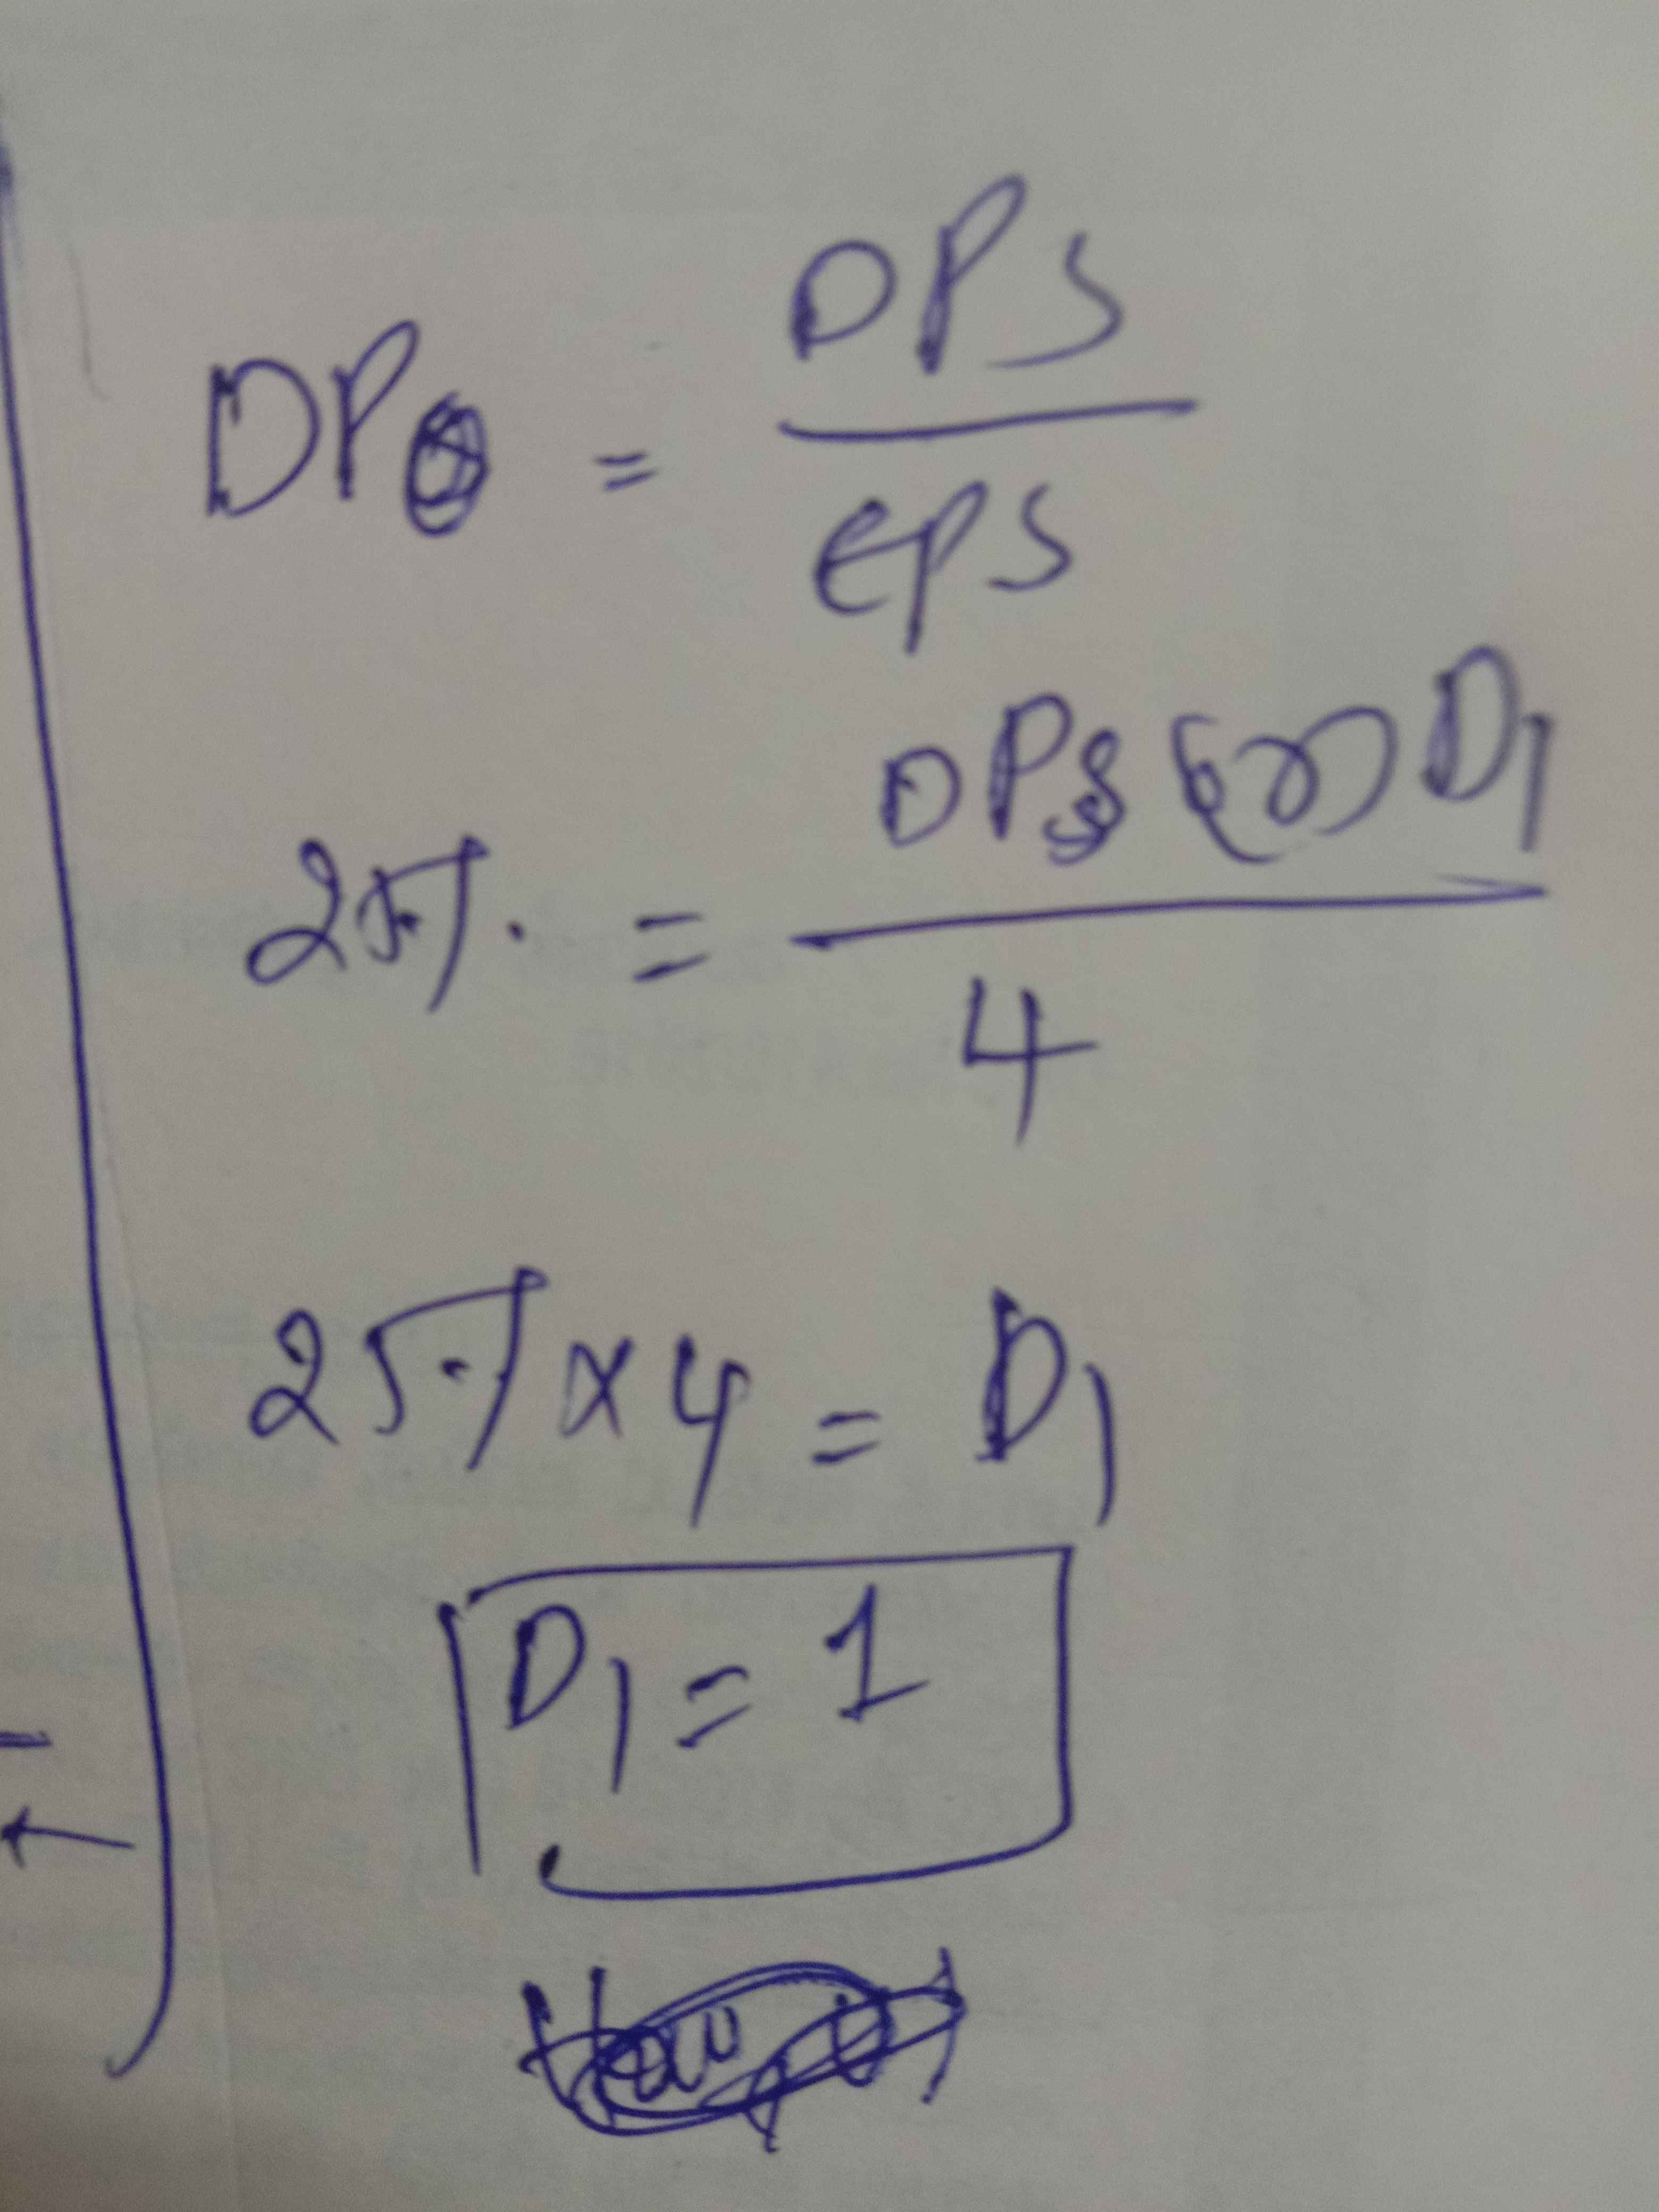 DP = DPS / EPS
25% = DPS or D1 / 4
25% × 4 = D1
D1 = 1